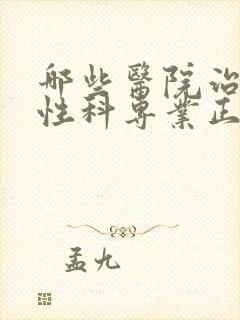 哪些醫院治
性科專業正
孟九